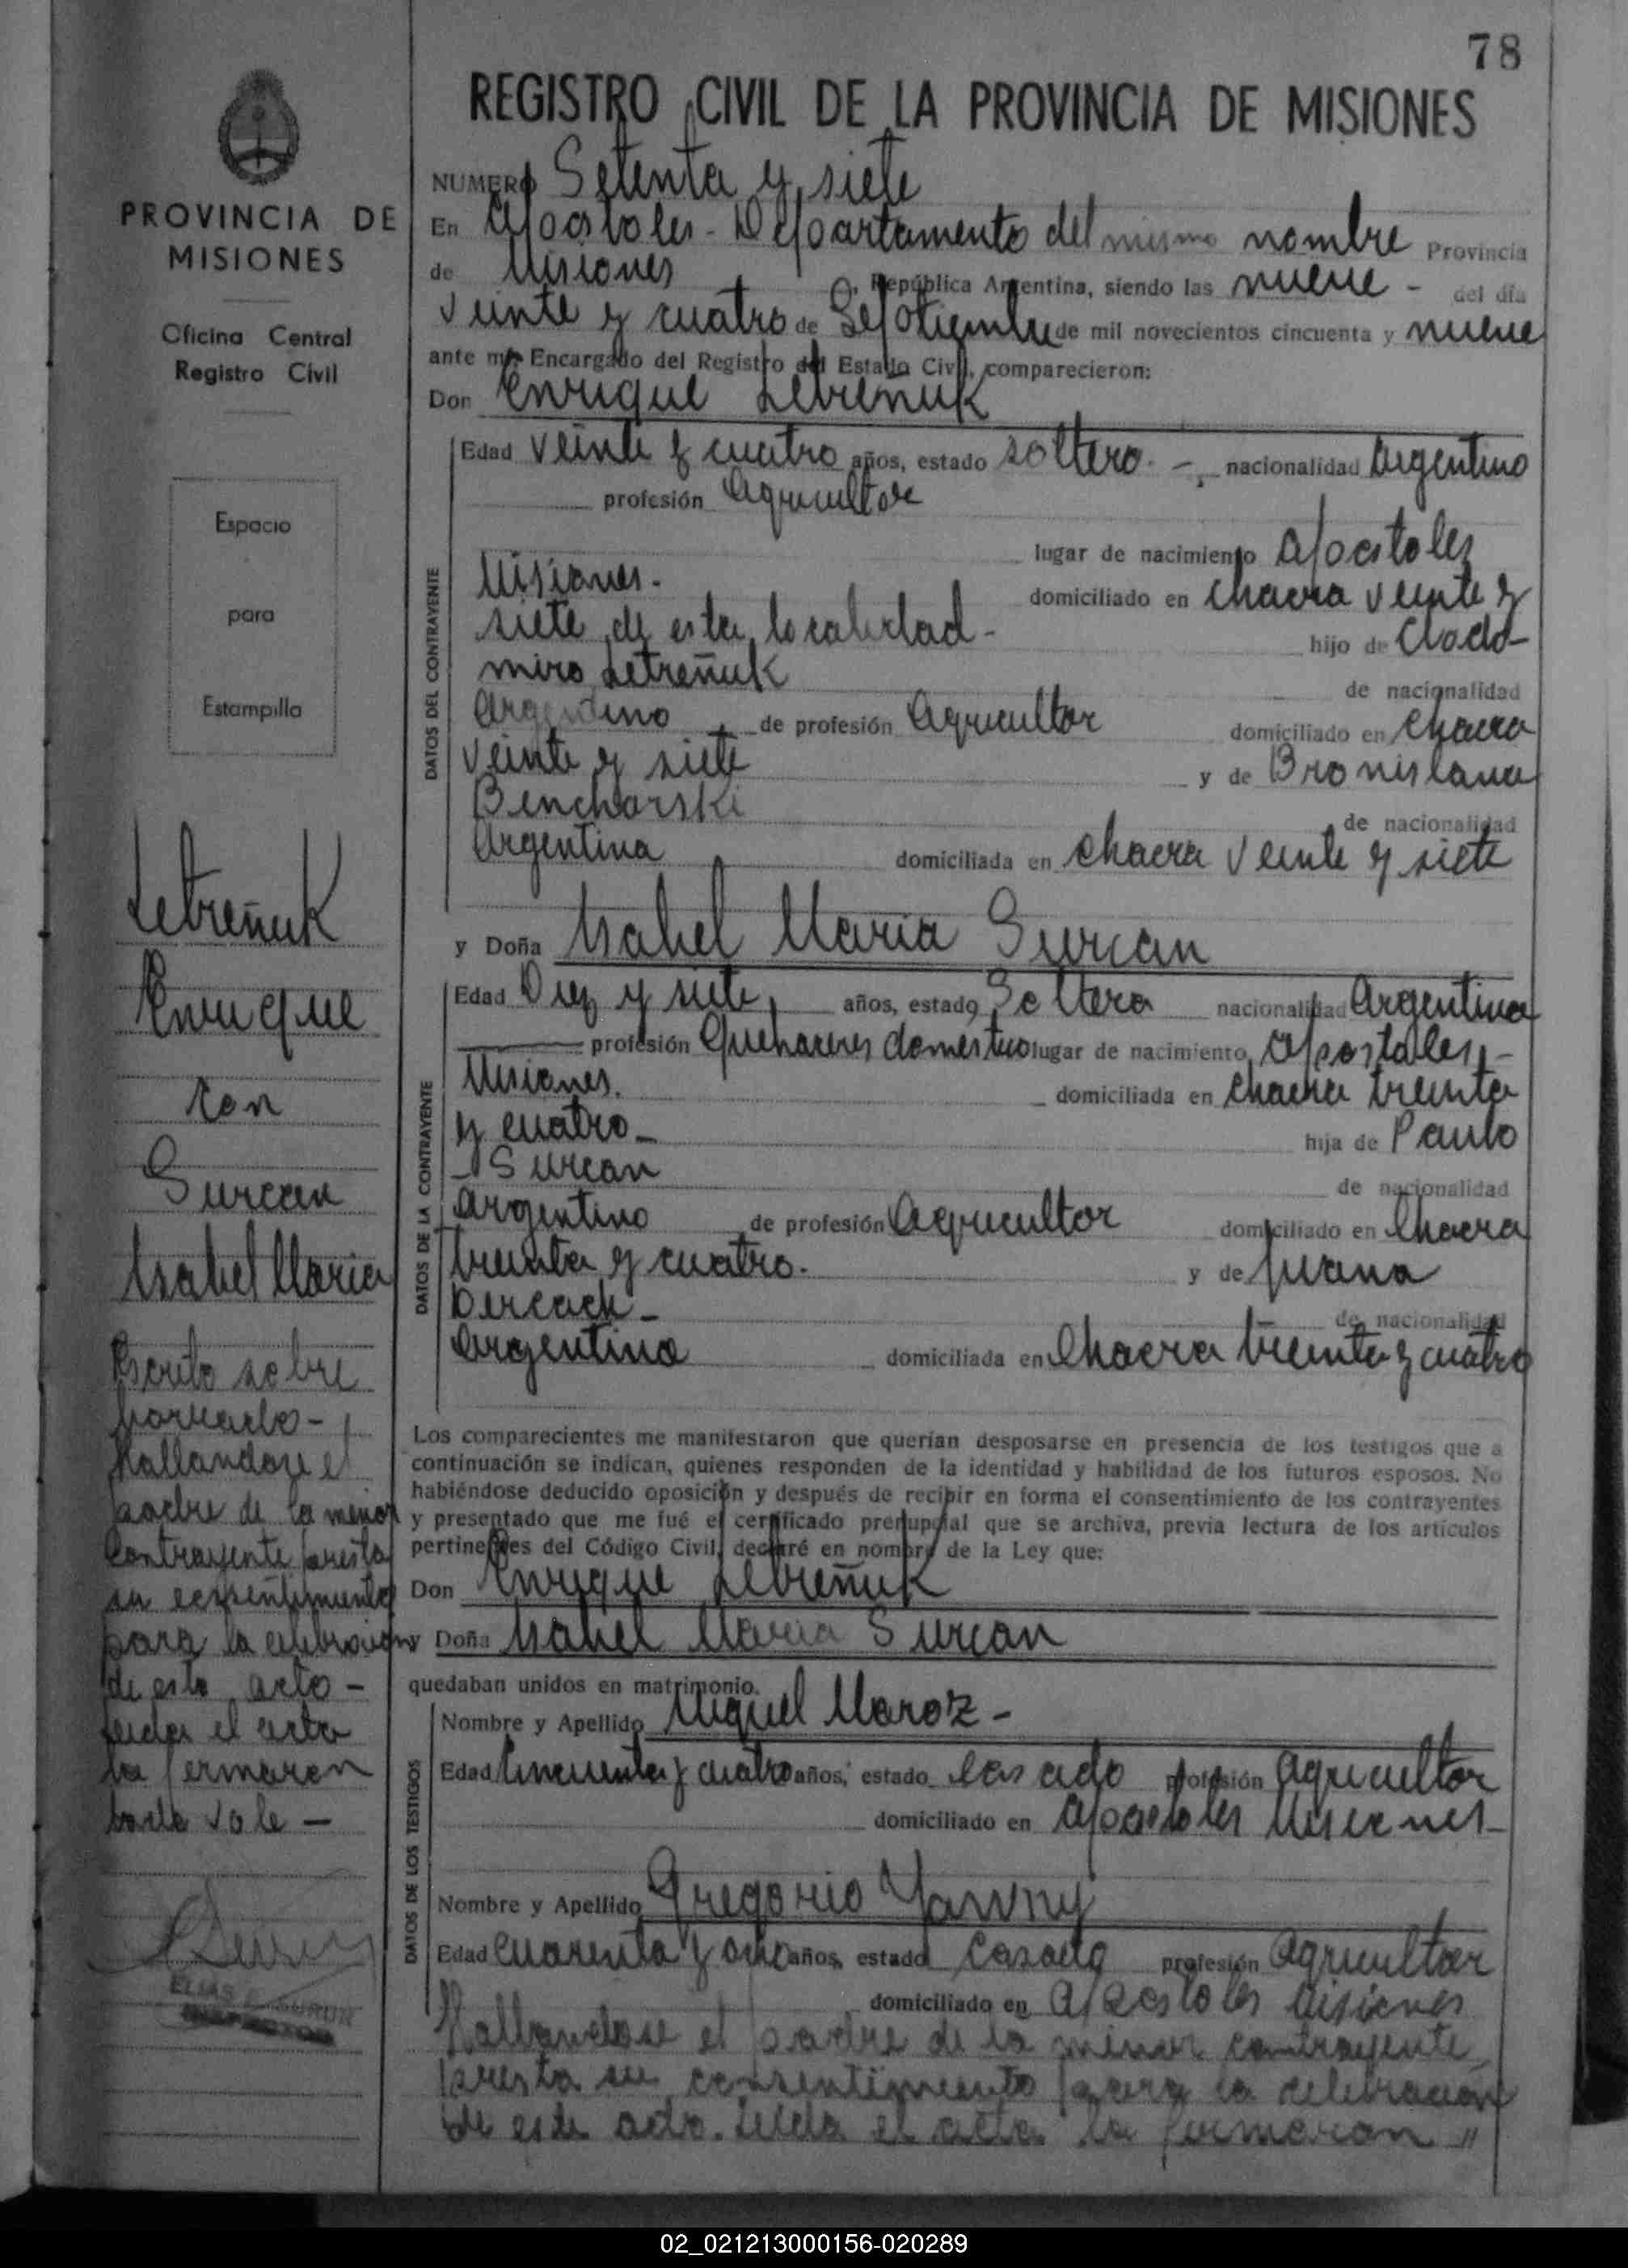 78
REGISTRO CIVIL DE LA PROVINCIA DE MISIONES
PROVINCIA DE
MISIONES
Oficina Central
Registro Civil
Espacio
para
Estampilla
NUMERO Setenta y siete
En Apostoles - Departamento del mismo nombre Provincia
de Misiones República Argentina, siendo las nueve - del día
veinte y cuatro de Septiembre de mil novecientos cincuenta y nueve
ante mí, Encargado del Registro del Estado Civil, comparecieron:
Don Enrique Letreñuk
DATOS DEL CONTRAYENTE
Edad veinte y cuatro años, estado soltero - nacionalidad Argentino
profesión Agricultor
lugar de nacimiento Apostoles
Misiones. domiciliado en chacra veinte y
siete de esta localidad - hijo de Clodo-
miro Letreñuk de nacionalidad
Argentino de profesión Agricultor domiciliado en chacra
veinte y siete y de Bronislava
Bencharski de nacionalidad
Argentina domiciliada en chacra veinte y siete
y Doña Isabel Maria Surcan
DATOS DE LA CONTRAYENTE
Edad Diez y siete años, estado Soltera nacionalidad Argentina
profesión Quehaceres domestico lugar de nacimiento Apostoles, -
Misiones. domiciliada en chacra treinta
y cuatro - hija de Paulo
- Surcan de nacionalidad
Argentino de profesión Agricultor domiciliado en chacra
treinta y cuatro. y de Juana
de nacionalidad
Argentina domiciliada en chacra treinta y cuatro
Los comparecientes me manifestaron que querían desposarse en presencia de los testigos que a
continuación se indican, quienes responden de la identidad y habilidad de los futuros esposos. No
habiéndose deducido oposición y después de recibir en forma el consentimiento de los contrayentes
y presentado que me fué el certificado prenupcial que se archiva, previa lectura de los artículos
pertinentes del Código Civil, declaré en nombre de la Ley que:
Don Enrique Letreñuk
y Doña Isabel Maria Surcan
quedaban unidos en matrimonio.
DATOS DE LOS TESTIGOS
Nombre y Apellido Miguel Maroz -
Edad Cincuenta y cuatro años, estado casado profesión Agricultor
domiciliado en Apostoles Misiones -
Nombre y Apellido Gregorio Yawny
Edad cuarenta y ocho años, estado Casado profesión Agricultor
domiciliado en Apostoles Misiones
Hallandose el padre de la menor contrayente
presta su consentimiento para la celebracion
de este acto. Leida el acta la firmaron "
Letreñuk
Enrique
con
Surcan
Isabel Maria
Escrito sobre
borrado -
Hallandose el
padre de la menor
Contrayente presta
su consentimiento
para la celebracion
de este acto -
Leida el acta
la firmaron
todo vale -
02_021213000156-020289